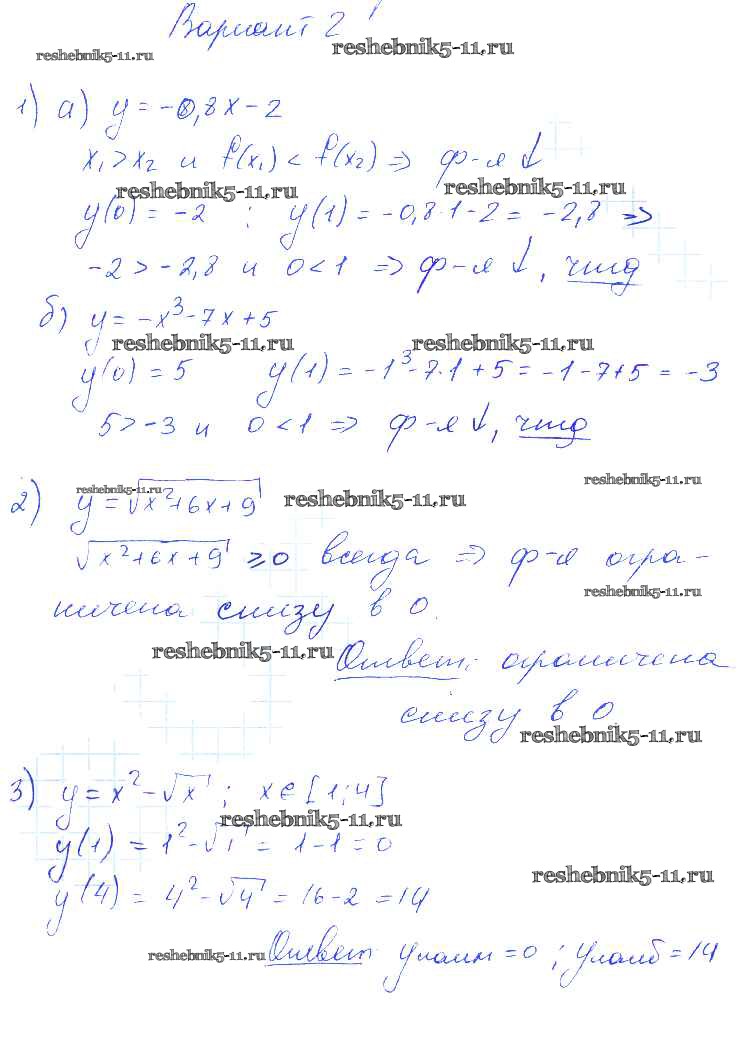 Вариант 2
reshebnik5-11.ru
reshebnik5-11.ru
1) а) y = -0,8x - 2
x₁ > x₂ и f(x₁) < f(x₂) ⇒ ф-я ↓
reshebnik5-11.ru
reshebnik5-11.ru
y(0) = -2 ; y(1) = -0,8·1-2 = -2,8 ⇒
-2 > -2,8 и 0 < 1 ⇒ ф-я ↓, чтд
б) y = -x³ - 7x + 5
reshebnik5-11.ru
reshebnik5-11.ru
y(0) = 5 y(1) = -1³-7·1+5 = -1-7+5 = -3
5 > -3 и 0 < 1 ⇒ ф-я ↓, чтд
reshebnik5-11.ru
reshebnik5-11.ru
reshebnik5-11.ru
2) y = √x²+6x+9
√x²+6x+9 ≥ 0 всегда ⇒ ф-я огра-
reshebnik5-11.ru
ничена снизу в 0.
reshebnik5-11.ru
Ответ: ограничена
снизу в 0
reshebnik5-11.ru
3) y = x² - √x ; x ∈ [1;4]
reshebnik5-11.ru
y(1) = 1² - √1 = 1-1 = 0
reshebnik5-11.ru
y(4) = 4² - √4 = 16-2 = 14
reshebnik5-11.ru
Ответ: yнаим = 0 ; yнаиб = 14